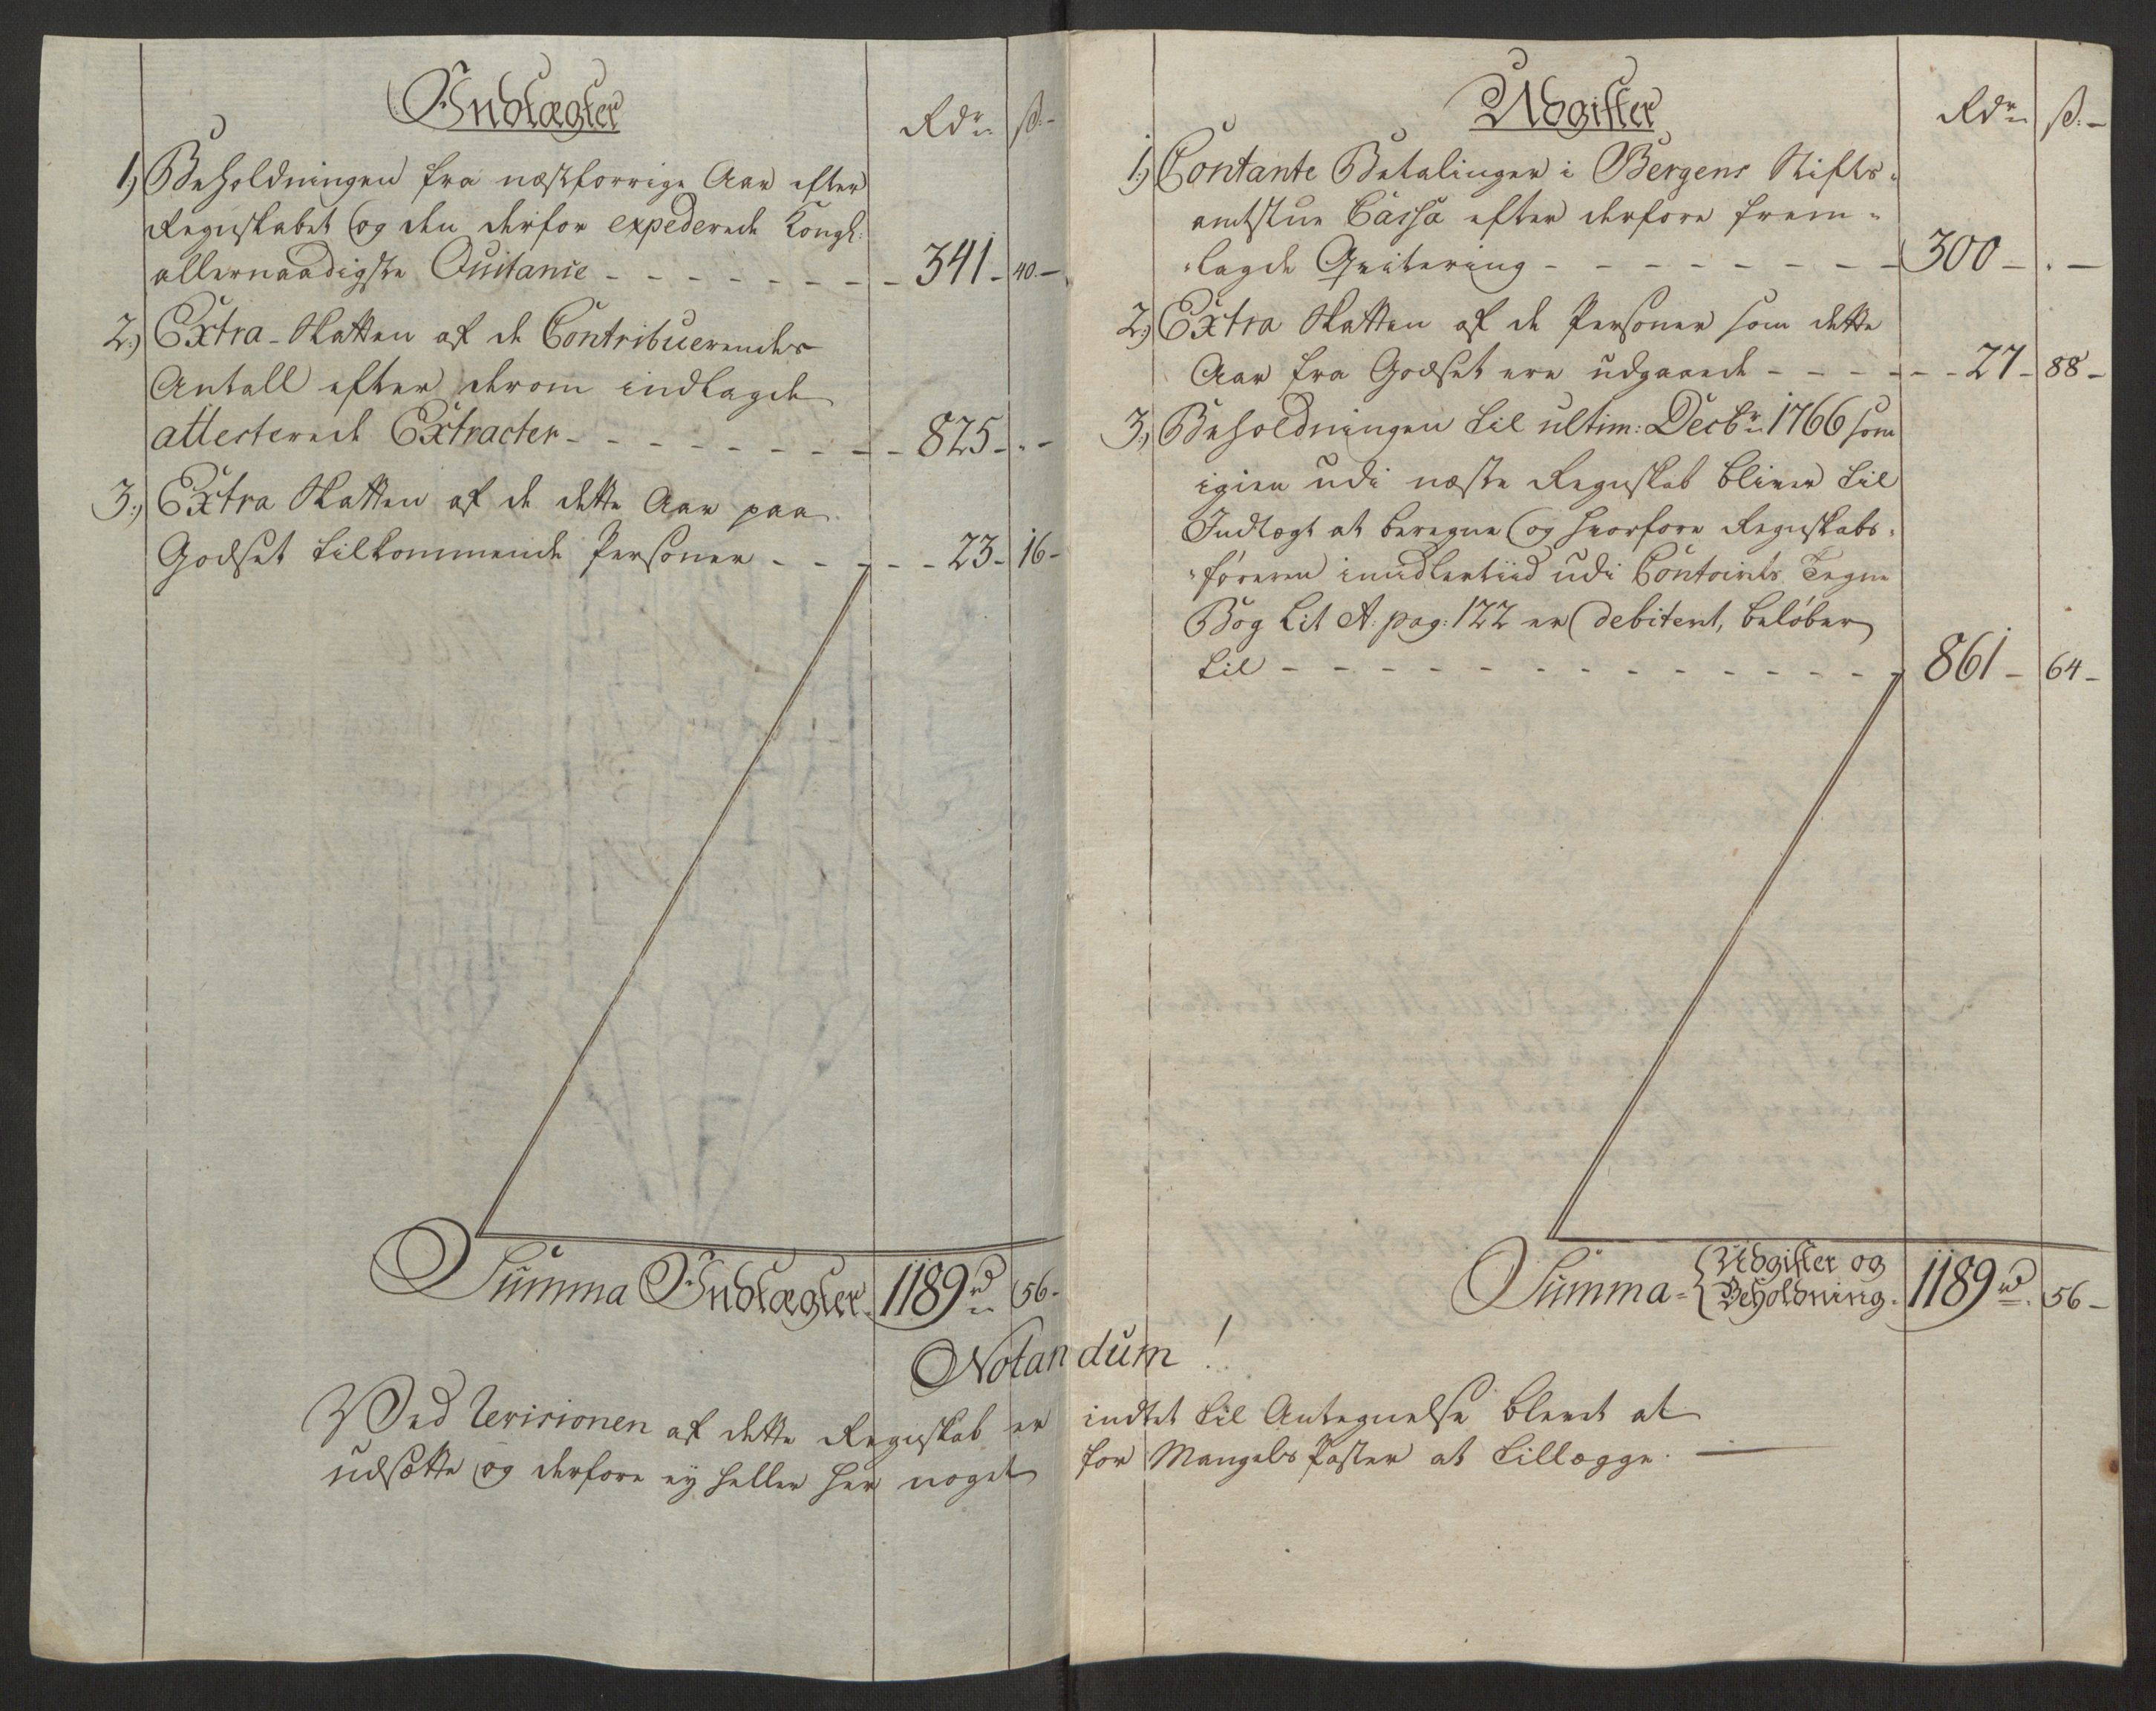 Indtægter
Rdr ß.
1.) Beholdningen fra næstforrige Aar efter
Regnskabet og den derfor expederede Kongl:
allernaadigste Quitanie - 341 - 40 -
2.) Extra-Skatten af de Contribuerendes
Antall efter derom indlagde
attesterede Extracter - 825 - . -
3.) Extra Skatten af de dette Aar paa
Godset tilkommende Personer - 23 - 16 -
Summa Indtægter 1189 rd 56 -
Udgifter
Rdr ß. -
1.) Contante Betalinger i Bergens Stifts-
amtstue Cassa efter derfore frem-
lagde Qvitering - 300 - . -
2.) Extra Skatten af de Personer som dette
Aar fra Godset ere udgaaede - 27 - 88 -
3.) Beholdningen til ultim: Decbr 1766 som
igien udi næste Regnskab bliver til
Indtægt at beregne og hvorfore Regnskabs-
føreren imidlertiid udi Contoirets Tegne
Bog Lit A. pag: 122 er debitert, beløber
til - 861 - 64 -
Summa - Udgifter og
Beholdning - 1189 rd 56 -
Notandum!
Ved Revisionen af dette Regnskab er indtet til Antegnelse blevet at
udsætte og derfore ey heller her noget for Mangels Poster at tillægge. -